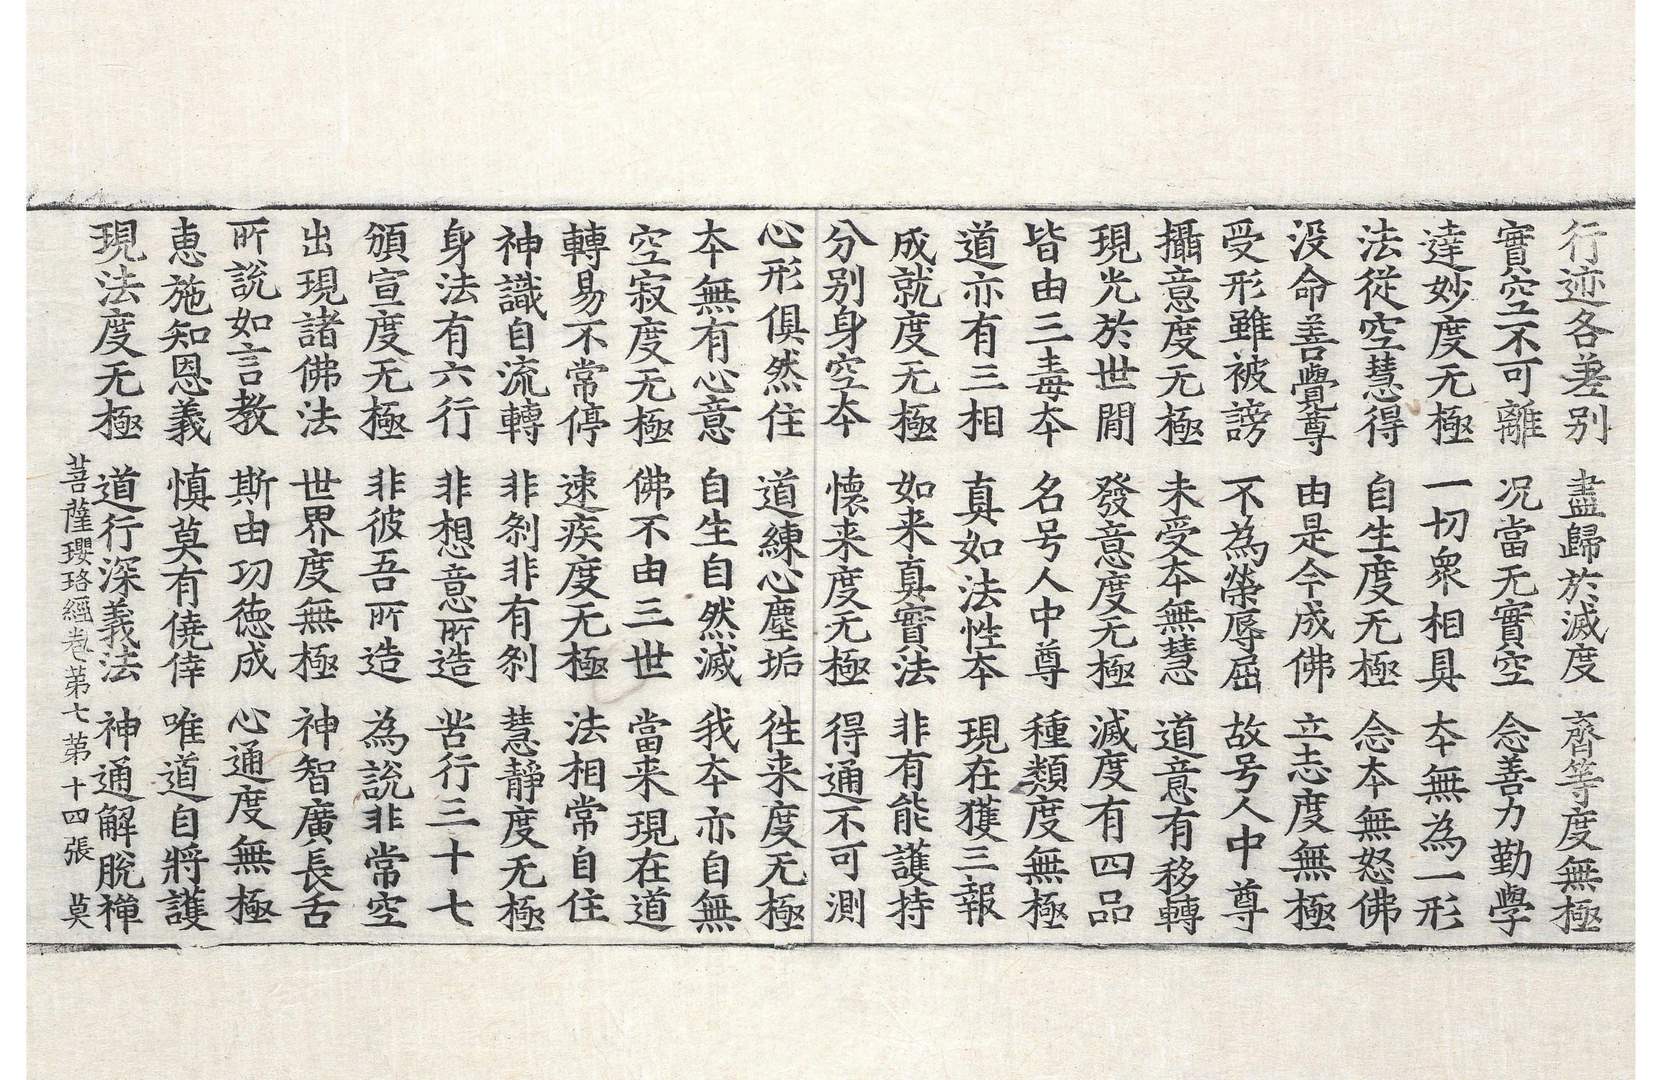 行迹各差别 盡歸於滅度 齊等度無極
實空不可離 况當无實空 念善力勤學
達妙度无極 一切衆相具 夲無為一形
法從空慧得 自生度无極 念夲無怒佛
没命善覺尊 由是今成佛 立志度無極
受形雖被謗 不為榮辱屈 故号人中尊
攝意度无極 未受夲無慧 道意有移轉
現光於世間 發意度无極 滅度有四品
皆由三毒夲 名号人中尊 種類度無極
道亦有三相 真如法性夲 現在獲三報
成就度无極 如来真實法 非有能護持
分别身空夲 懷来度无極 得通不可測
心形俱然住 道練心塵垢 徃来度无極
夲無有心意 自生自然滅 我夲亦自無
空寂度无極 佛不由三世 當来現在道
轉易不常停 速疾度无極 法相常自住
神識自流轉 非剎非有剎 慧靜度无極
身法有六行 非想意所造 苦行三十七
頒宣度无極 非彼吾所造 為說非常空
出現諸佛法 世界度無極 神智廣長舌
所說如言教 斯由功徳成 心通度無極
恵施知恩義 慎莫有僥倖 唯道自將護
現法度无極 道行深義法 神通解脫禅
菩薩瓔珞經卷第七 第十四張 莫